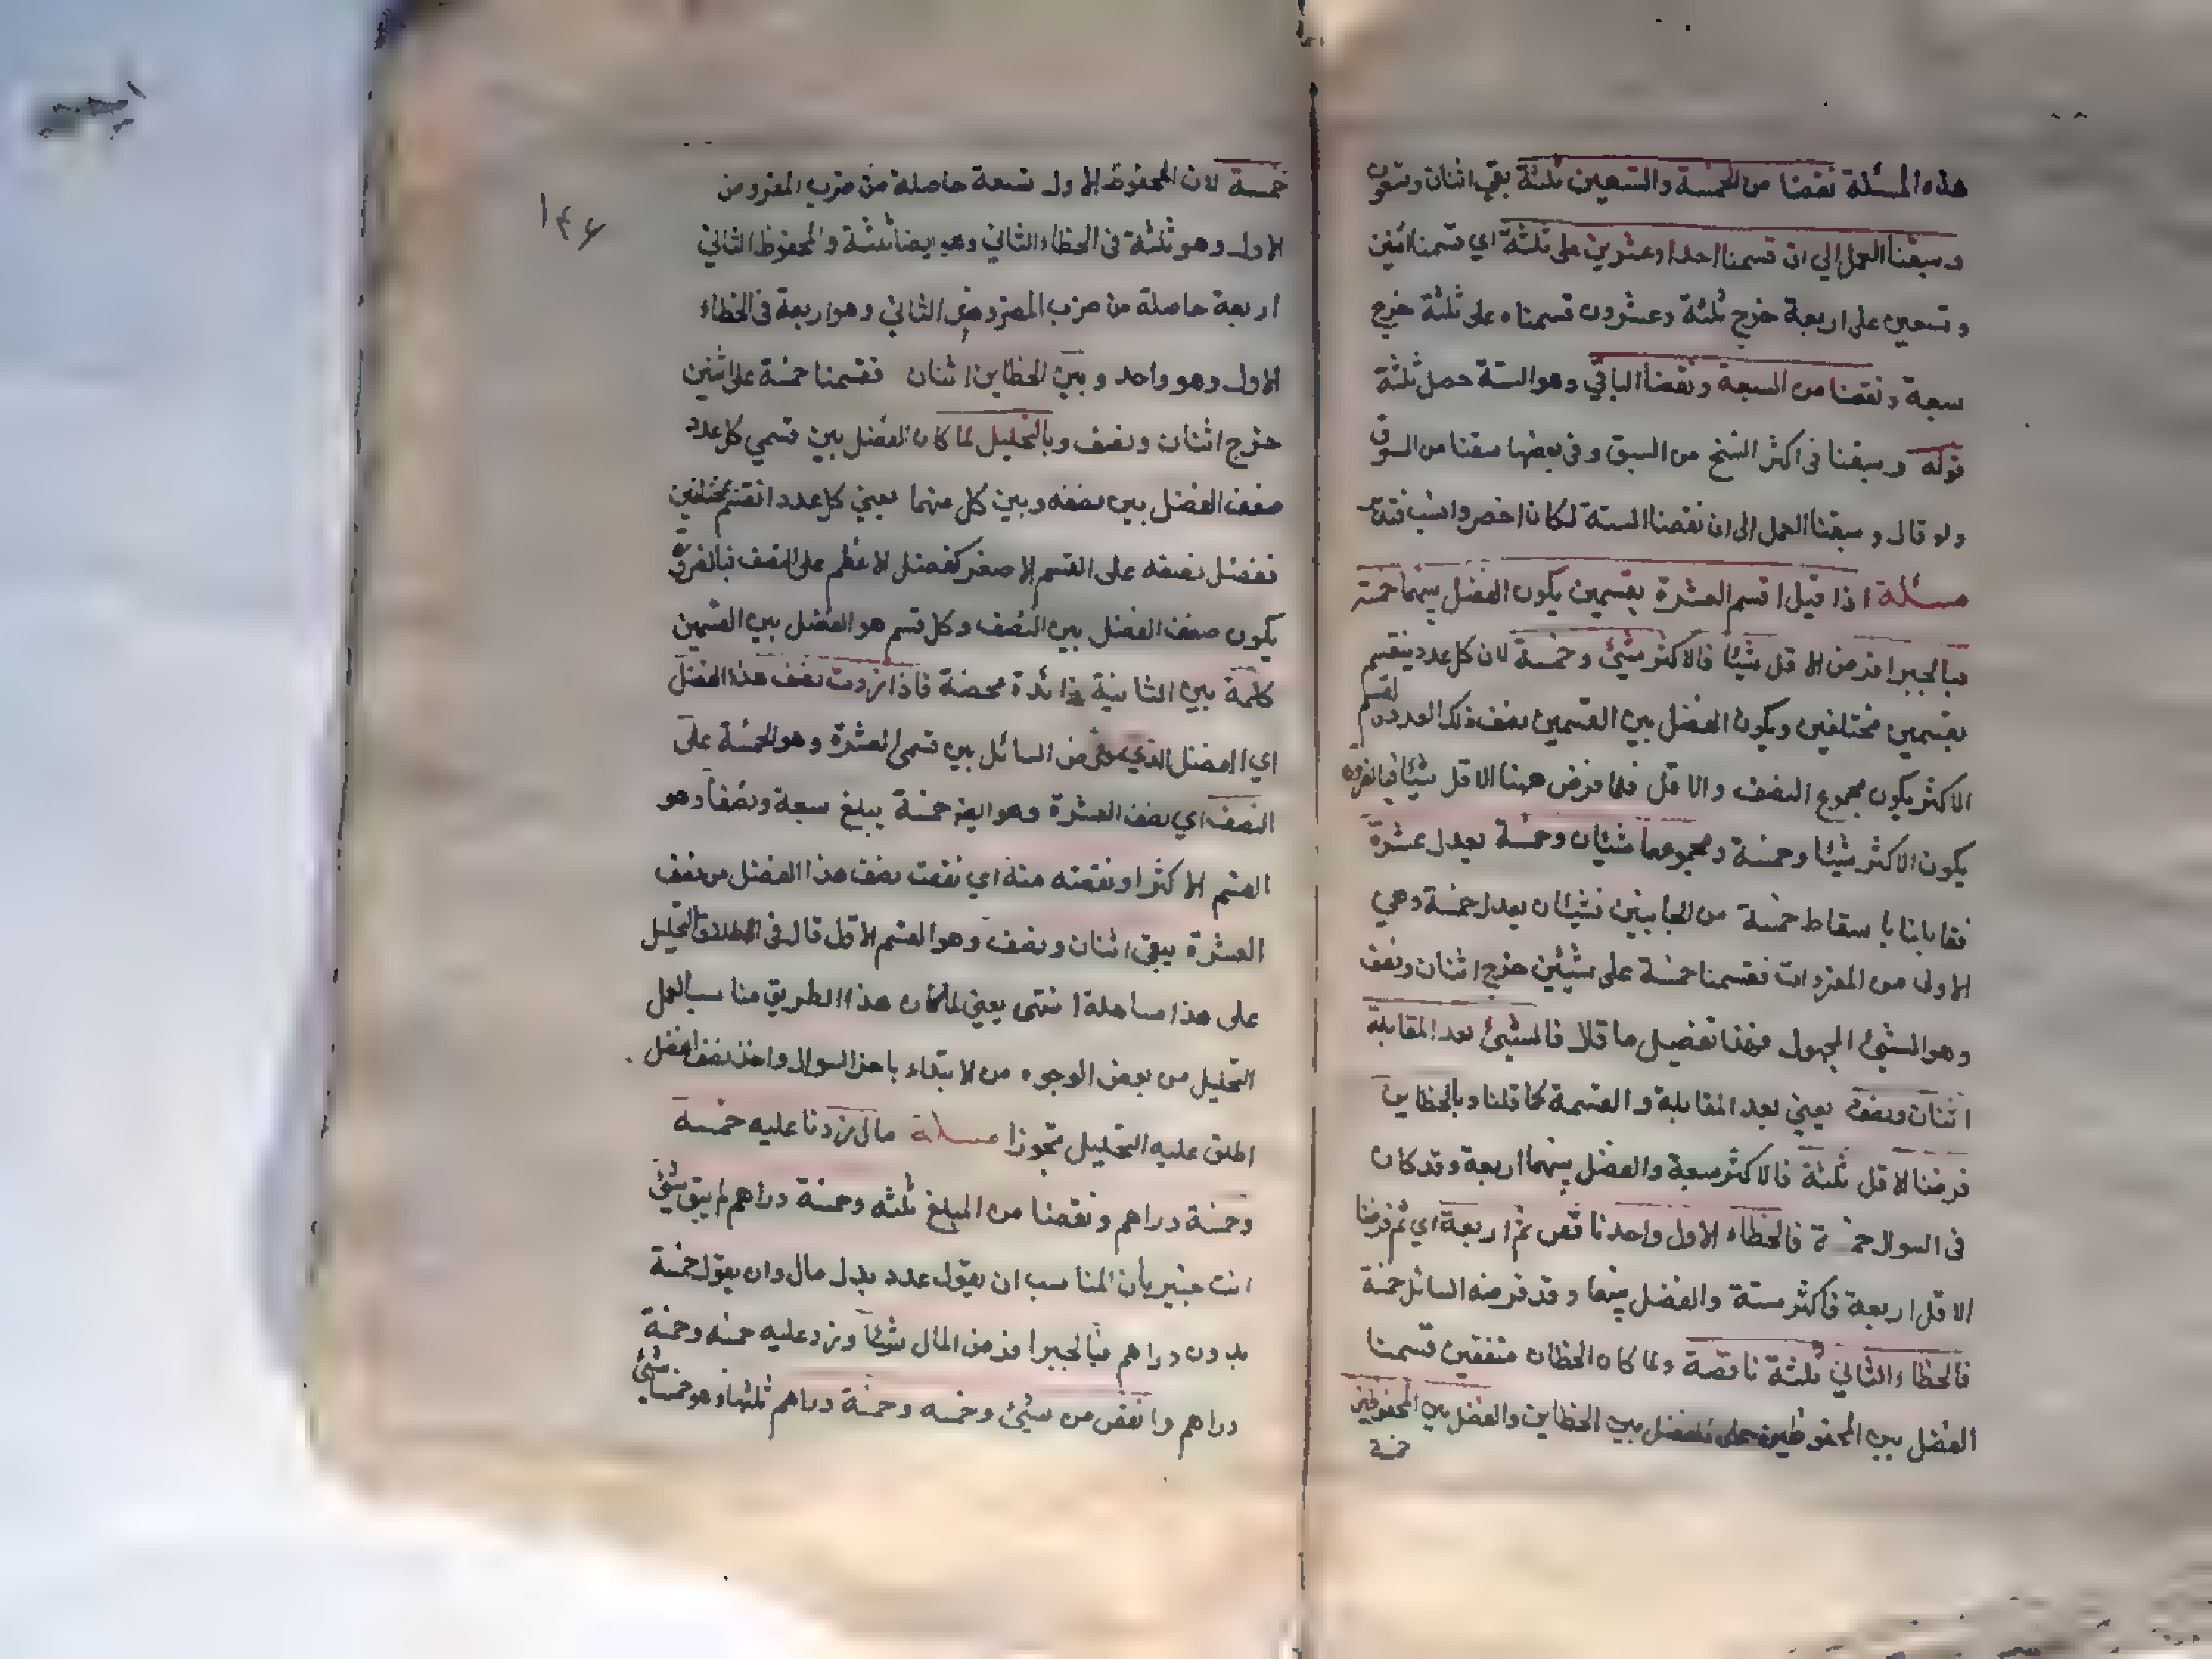 هذه المسئلة نقصنا من الخمسة والتسعين ثلثة بقي اثنان وتسعون
وسبقنا العمل الي ان قسمنا احدا وعشرين على ثلثة اي قسمنا اثنين
وتسعين على اربعة خرج ثلثة وعشرون قسمناه على ثلثة خرج
سبعة ونقصنا من السبعة ونقصنا الباقي وهو الستة حصل ثلثة
قوله وسبقنا في اكثر النسخ من السبق وفي بعضها سقنا من السوق
ولو قال وسبقنا العمل الى ان نقصنا الستة لكان اخصر وانسب
مسئلة اذا قيل اقسم العشرة بقسمين يكون الفضل بينهما خمسة
فبالجبر افرض الاقل شيئا فالاكثر شيئ وخمسة لان كل عدد ينقسم
بقسمين مختلفين ويكون الفضل بين القسمين نصف ذلك العدد القسم
الاكثر يكون مجموع النصف والاقل فلما فرض ههنا الاقل شيئا فبالضرورة
يكون الاكثر شيئا وخمسة ومجموعهما شيئان وخمسة يعدل عشرة
فقابلنا باسقاط خمسة من الجانبين فشيئان يعدل خمسة وهي
الاولى من المفردات فقسمنا خمسة على شيئين خرج اثنان ونصف
وهو الشيئ المجهول فهذا تفصيل ما قال فالشيئ بعد المقابلة
اثنان ونصف يعني بعد المقابلة والقسمة كما قلنا وبالخطاين
فرضنا الاقل ثلثة فالاكثر سبعة والفضل بينهما اربعة وقد كان
في السوال خمسة فالخطاء الاول واحد ناقص ثم اربعة اي ثم فرضنا
الاقل اربعة فاكثر ستة والفضل بينهما وقد فرضه السائل خمسة
فالخطاء الثاني ثلثة ناقصة ولما كان الخطان متفقين قسمنا
الفضل بين المحفوظين على الفضل بين الخطاين والفضل بين المحفوظين
خمسة
١٣٦
خمسة لان المحفوظ الاول تسعة حاصلة من ضرب المفروض
الاول وهو ثلثة في الخطاء الثاني وهو ايضا ثلثة والمحفوظ الثاني
اربعة حاصلة من ضرب المفروض الثاني وهو اربعة في الخطاء
الاول وهو واحد وبين الخطاين اثنان فقسمنا خمسة على اثنين
خرج اثنان ونصف وبالتحليل لما كان الفضل بين قسمي كل عدد
ضعف الفضل بين نصفه وبين كل منهما يعني كل عدد انقسم بمختلفين
ففضل نصفه على القسم الاصغر كفضل الاعظم على النصف فبالضرورة
يكون ضعف الفضل بين النصف وكل قسم هو الفضل بين القسمين
كلمة بين الثانية زائدة محضة فاذا زدت نصف هذا الفضل
اي الفضل الذي فرض السائل بين قسمي العشرة وهو الخمسة على
النصف اي نصف العشرة وهو ايضا خمسة يبلغ سبعة ونصفا وهو
القسم الاكثر او نقصته منه اي نقصت نصف هذا الفضل من نصف
العشرة يبقى اثنان ونصف وهو القسم الاول قال في اطلاق التحليل
على هذا مساهلة انتهى يعني لما كان هذا الطريق مناسب العمل
التحليل من بعض الوجوه من الابتداء باخذ السوال واخذ نصف الفضل
اطلق عليه التحليل تجوزا مسئلة مال زدنا عليه خمسة
وخمسة دراهم ونقصنا من المبلغ ثلثه وخمسة دراهم لم يبق شيئ
انت خبير بأن المناسب ان يقول عدد بدل مال وان يقول خمسة
بدون دراهم فبالجبر افرض المال شيئا وزد عليه خمسه وخمسة
دراهم وانقص من شيئ وخمسه وخمسة دراهم ثلثها وهو خمسا شيئ